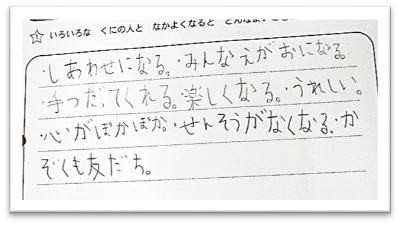 ☆ いろいろな くにの人と なかよくなると
・しあわせになる。・みんなえがおになる。
・手つだってくれる。楽しくなる。・うれしい。
・心がぽかぽか。・せんそうがなくなる。・か
ぞくも友だち。